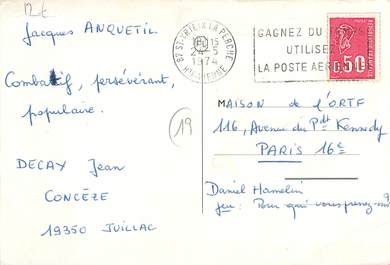 12 €
Jacques ANQUETIL
Combatif, persévérant,
populaire.
DECAY Jean
CONCÈZE
19350 JUILLAC
19
87 ST-YRIEIX LA PERCHE
15
24-5
1974
HTE-VIENNE
GAGNEZ DU
UTILISEZ
LA POSTE
0,50
MAISON de l'ORTF
116, Avenue du Pdt Kennedy
PARIS 16e
Daniel Hamelin
jeu: Pour qui vous prenez-